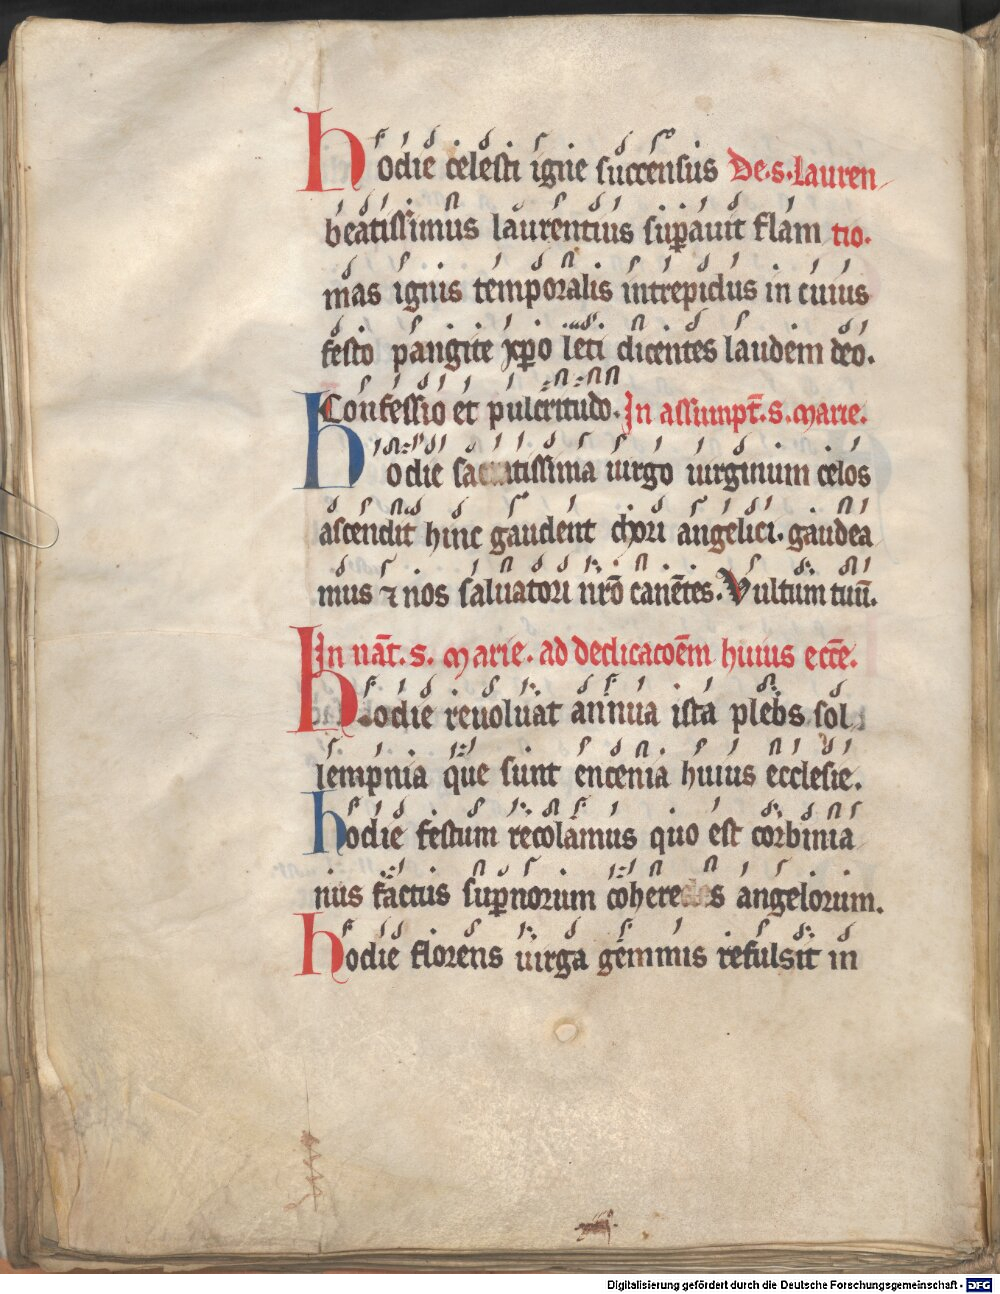 hodie celesti igne succensus De·s·Lauren
beatissimus laurentius suꝑauit flam tio·
mas ignis temporalis intrepidus in cuius
festo pangite xp̄o leti dicentes laudem deo·
Confessio et pulcritudo· In assumpt̄·s·marie·
hodie sacratissima uirgo uirginum celos
ascendit hinc gaudent chori angelici·gaudea
mus ⁊ nos saluatori nr̄o canētes·Vultum tuū·
In nāt·s·marie·ad dedicacōem huius ecc̄e·
hodie reuoluat annua ista plebs sol
lempnia que sunt encenia huius ecclesie·
hodie festum recolamus quo est corbinia
nus factus suꝑnorum coheredes angelorum·
hodie florens uirga gemmis refulsit in
Digitalisierung gefördert durch die Deutsche Forschungsgemeinschaft - DFG